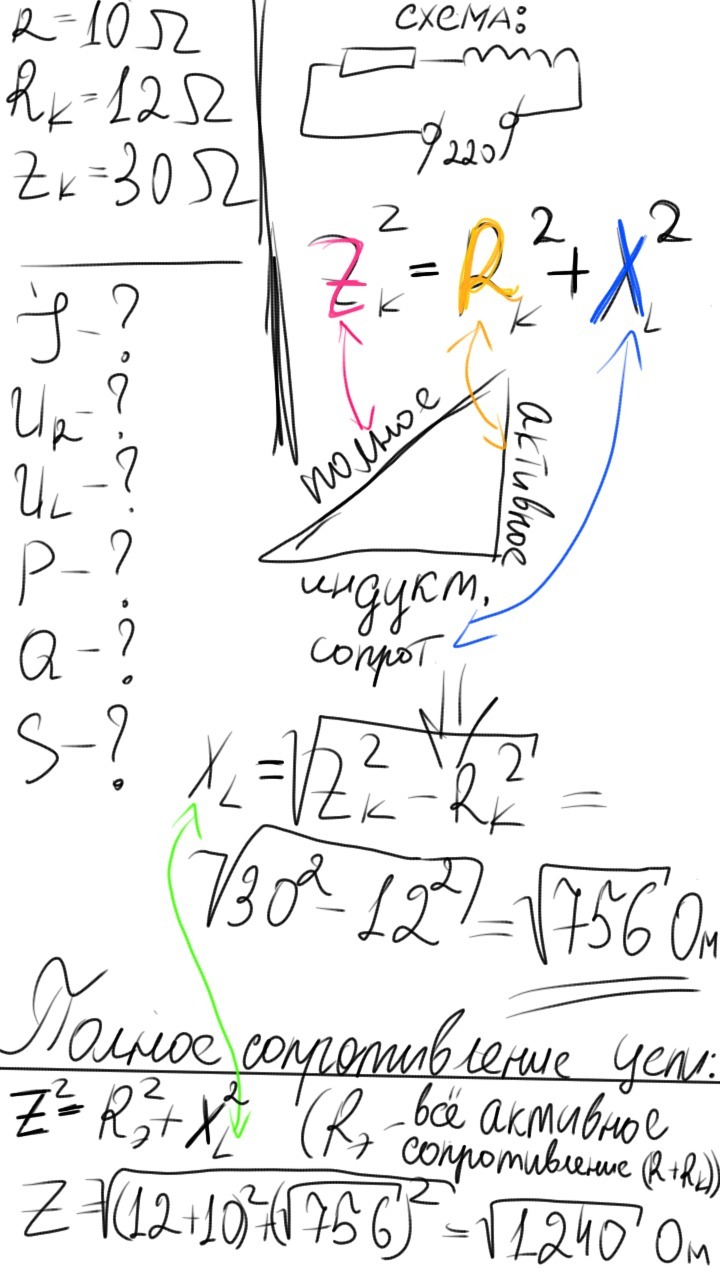 R=10Ω
Rк=12Ω
Zк=30Ω
J-?
UR-?
UL-?
P-?
Q-?
S-?
схема:
220
Zк²=Rк²+XL²
полное
активное
индукт.
сопрот
XL=√Zк²-Rк² =
√30²-12² = √756 Ом
Полное сопротивление цепи:
Z²=Rэ²+XL² (Rэ-всё активное
сопротивление (R+RK))
Z=√(12+10)²+(√756)² = √1240 Ом